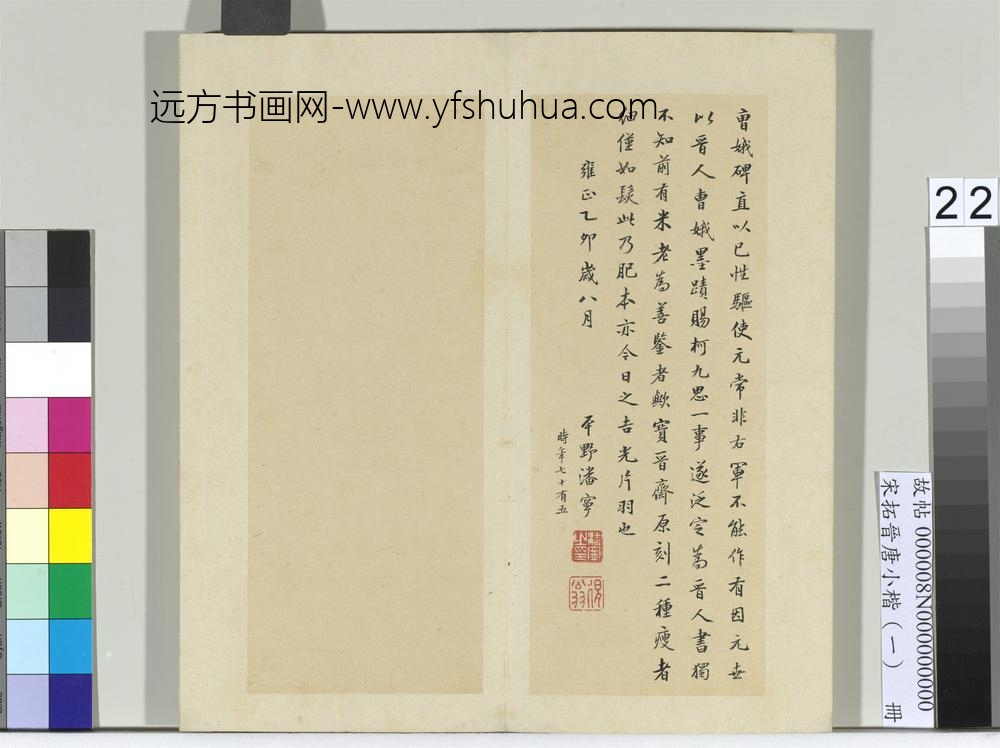 远方书画网-www.yfshuhua.com
曹娥碑直以己性驅使元常非右軍不能作有因元世
以晉人曹娥墨蹟賜柯九思一事遂泛定為晉人書獨
不知前有米老為善鑒者歟寶晉齋原刻二種瘦者
細僅如髮此乃肥本亦今日之吉光片羽也
雍正乙卯歲八月
平野潘寧
時年七十有五
22
故帖 000008N000000000
宋拓晉唐小楷（一） 冊